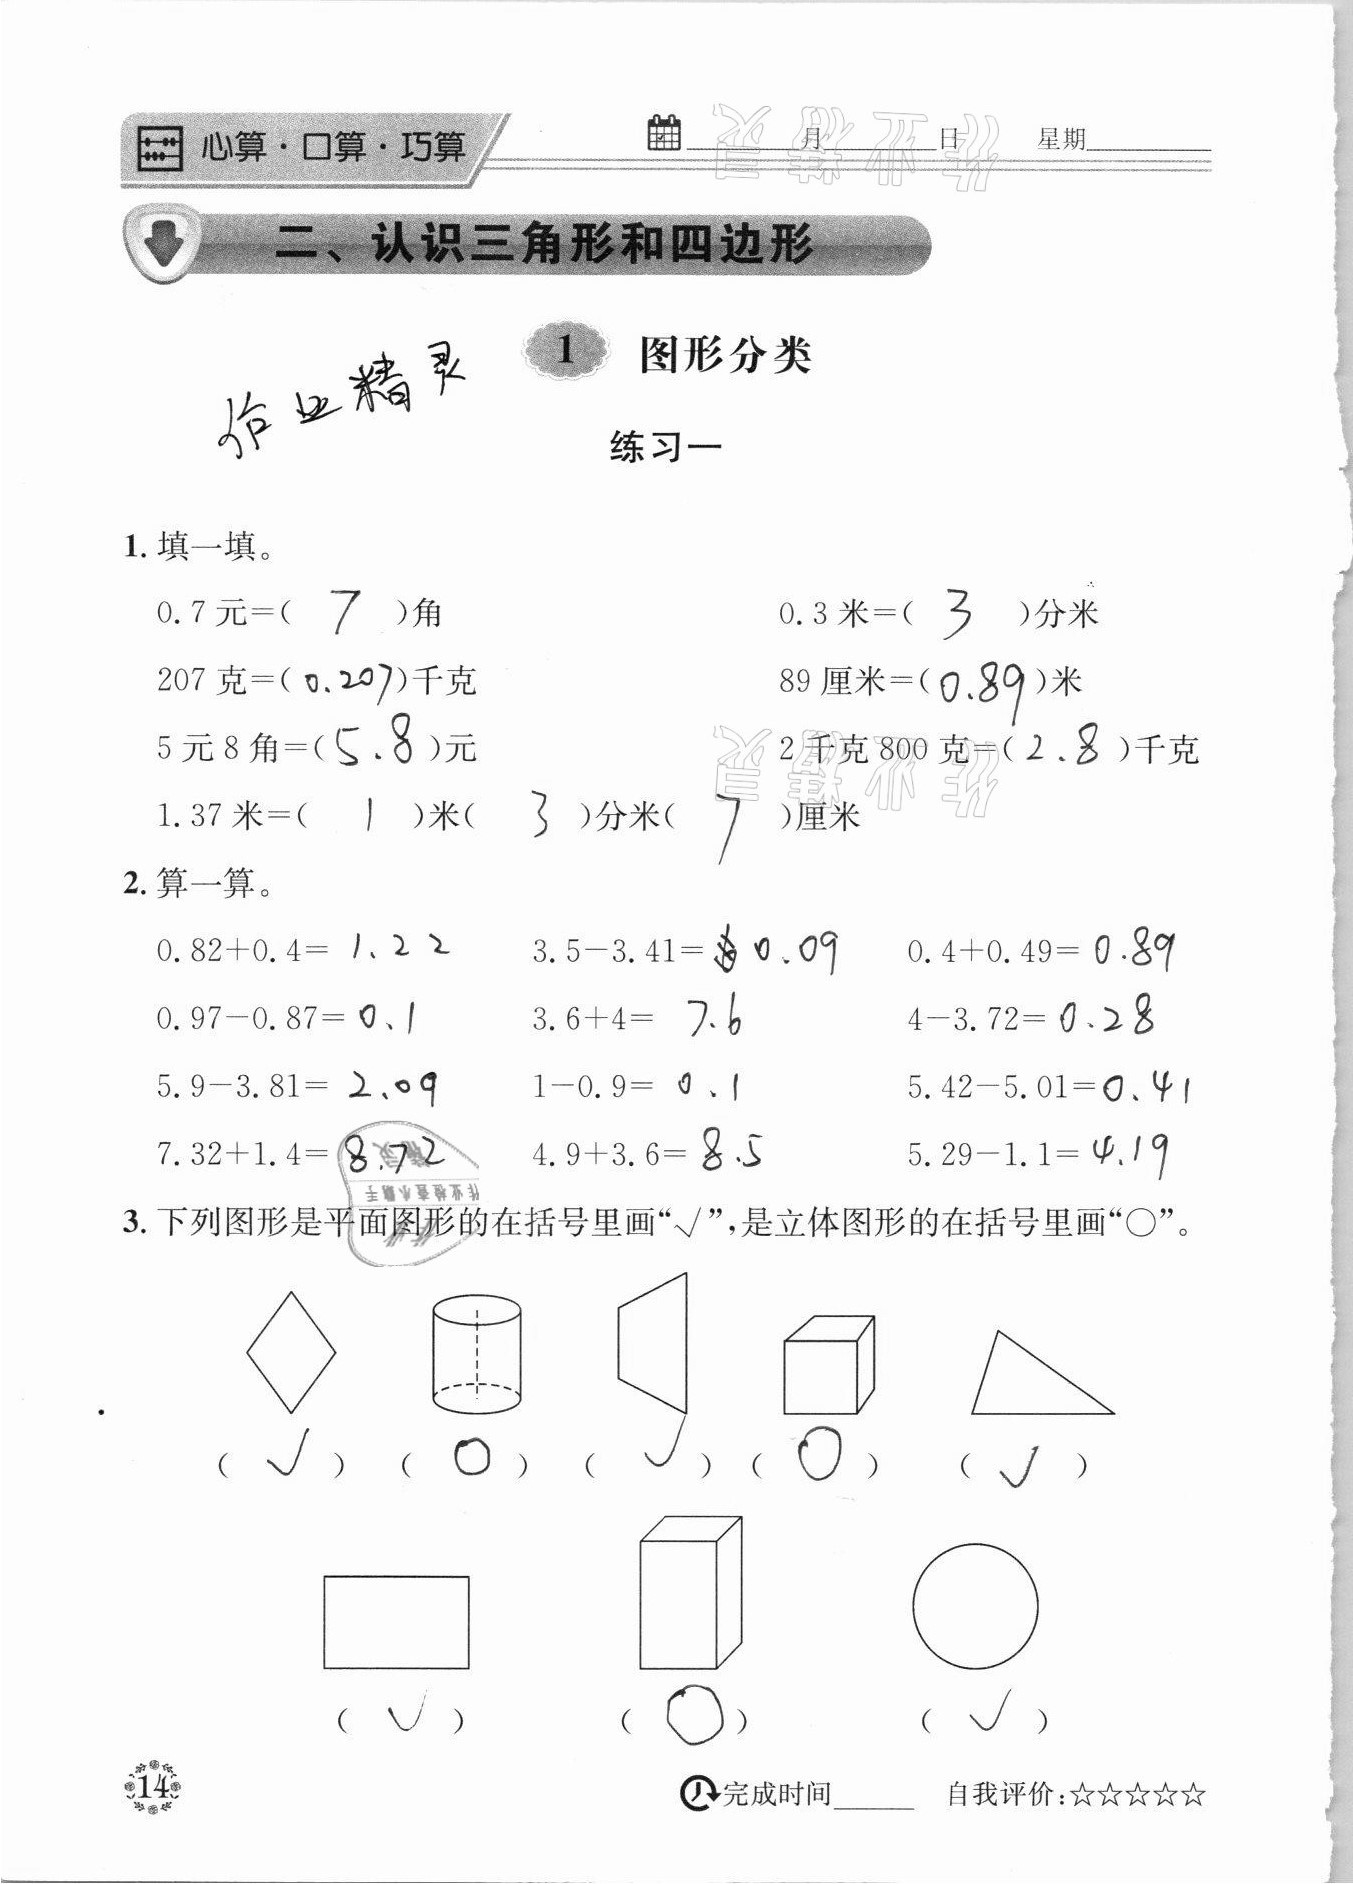 心算·口算·巧算 ____月____日 星期____
二、认识三角形和四边形
1 图形分类
作业精灵
练习一
1. 填一填。
0.7元=( 7 )角 0.3米=( 3 )分米
207克=(0.207)千克 89厘米=(0.89)米
5元8角=(5.8)元 2千克800克=(2.8)千克
1.37米=( 1 )米( 3 )分米( 7 )厘米
2. 算一算。
0.82+0.4= 1.22 3.5-3.41= 0.09 0.4+0.49= 0.89
0.97-0.87= 0.1 3.6+4= 7.6 4-3.72= 0.28
5.9-3.81= 2.09 1-0.9= 0.1 5.42-5.01= 0.41
7.32+1.4= 8.72 4.9+3.6= 8.5 5.29-1.1= 4.19
3. 下列图形是平面图形的在括号里画“√”,是立体图形的在括号里画“○”。
( √ ) ( ○ ) ( √ ) ( ○ ) ( √ )
( √ ) ( ○ ) ( √ )
14 完成时间____ 自我评价:☆☆☆☆☆